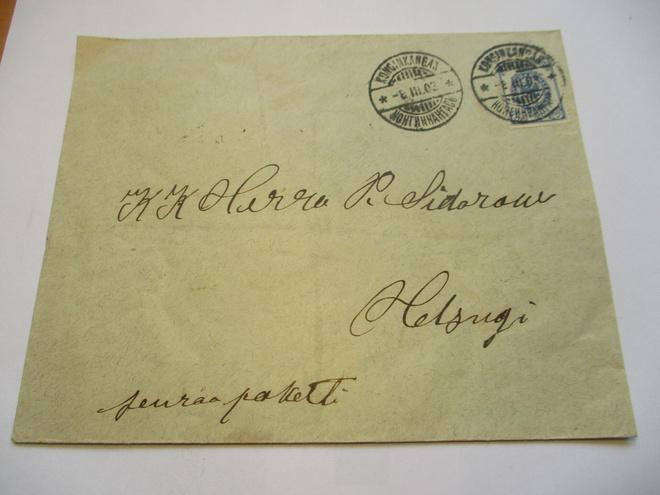 KONGINKANGAS
-6.III.03
КОНГИНКАНГАСЪ
KONGINKANGAS
-6.III.03
K K Herra P. Sidorow
Helsingi
seuraa paketti